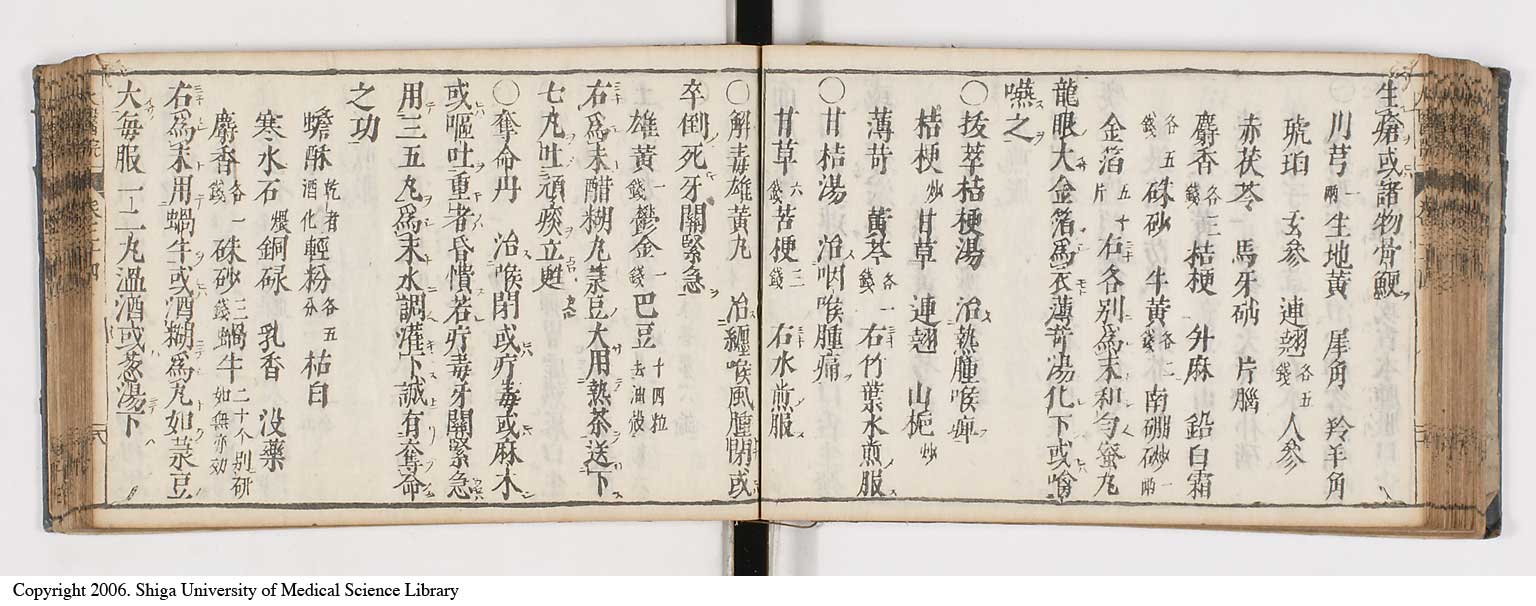 生瘡或諸物骨鯁
川芎一兩生地黄　犀角　羚羊角
琥珀　玄參　連翹各五錢人參
赤茯苓　馬牙硝　片腦
麝香各二錢桔梗　升麻　鉛白霜
各五錢硃砂　牛黄各二錢南硼砂一兩
金箔五十片右各别爲末和勻蜜丸
龍眼大金箔爲衣薄苛湯化下或噙
嚥之
〇拔萃桔梗湯　治熱腫喉痺
桔梗炒甘草　連翹　山梔炒
薄苛　黄芩各一錢右竹葉水煎服
〇甘桔湯　治咽喉腫痛
甘草六錢苦梗二錢　右水煎服
〇解毒雄黄丸　治纏喉風腫閉或
卒倒死牙關緊急
雄黄一錢鬱金一錢巴豆十四粒去油
右爲末醋糊丸菉豆大用熱茶送下
七丸吐頑痰立甦
〇奪命丹　治喉閉或疔毒或麻木
或嘔吐重者昏憒若疔毒牙關緊急
用三五丸爲末水調灌下誠有奪命
之功
蟾酥乾者酒化輕粉各五分枯白
寒水石煆銅碌　乳香　没藥
麝香各一錢硃砂三錢蝸牛二十个别研如無亦効
右爲末用蝸牛或酒糊爲丸如菉豆
大每服一二丸温酒或葱湯下